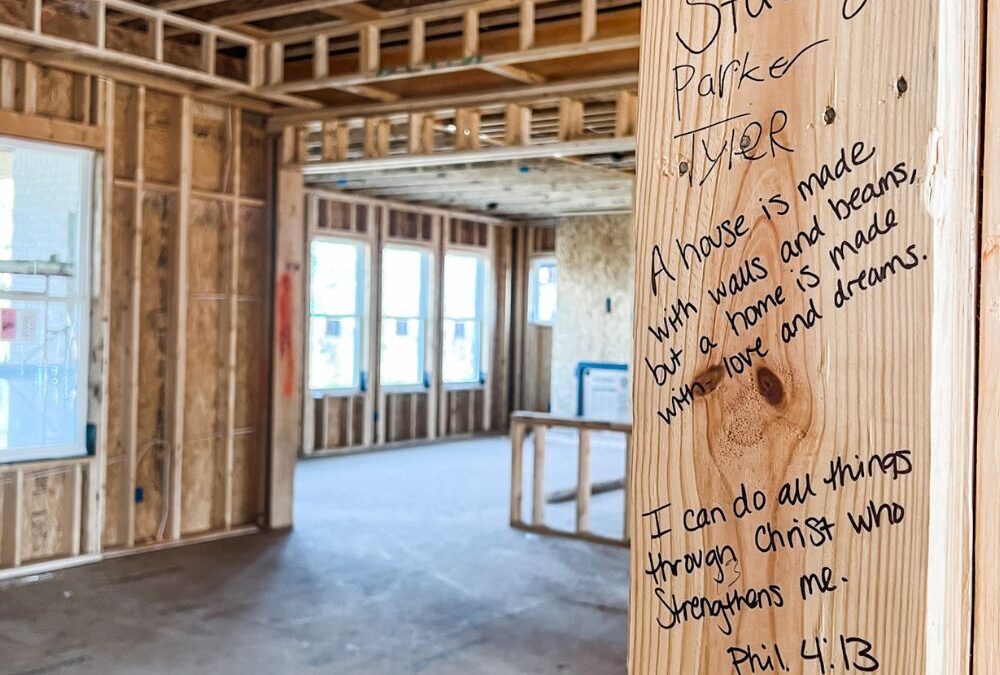 Parker
TYLER
A house is made
with walls and beams,
but a home is made
with love and dreams.
I can do all things
through Christ who
Strengthens me.
Phil. 4:13